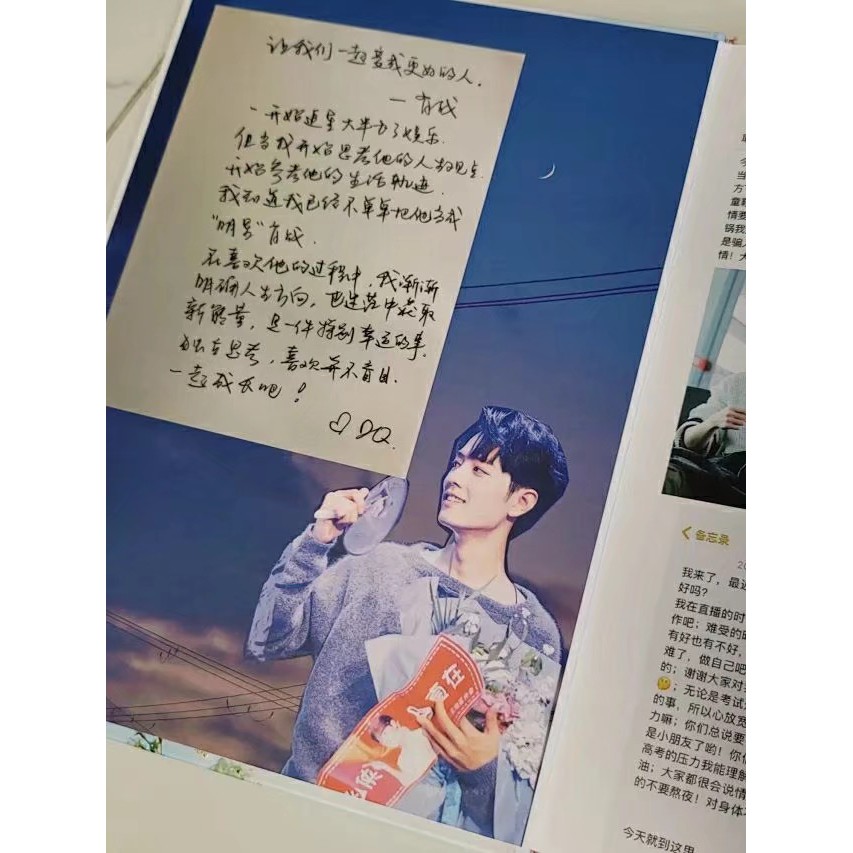 让我们一起变成更好的人.
—肖战
一开始追星大半为了娱乐.
但当我开始思考他的人物见点.
开始参考他的生活轨迹.
我知道我已经不单单把他当成
"明星"肖战.
在喜欢他的过程中,我渐渐
明确人生方向,也连营中获取
新能量,是一件特别幸运的事.
独立思考,喜欢并不盲目.
一起成长吧!
♡ DQ.
直在
候
当
方
童
情要
锅我
是骗人
情!大
备忘录
20
我来了,最近
好吗?
我在直播的时
作吧;难受的时
有好也有不好,
难了,做自己吧
的;谢谢大家对
🤔;无论是考试
的事,所以心放宽
力嘛;你们总说要
是小朋友了哟!你们
高考的压力我能理解
油;大家都很会说情
的不要熬夜!对身体不
今天就到这里